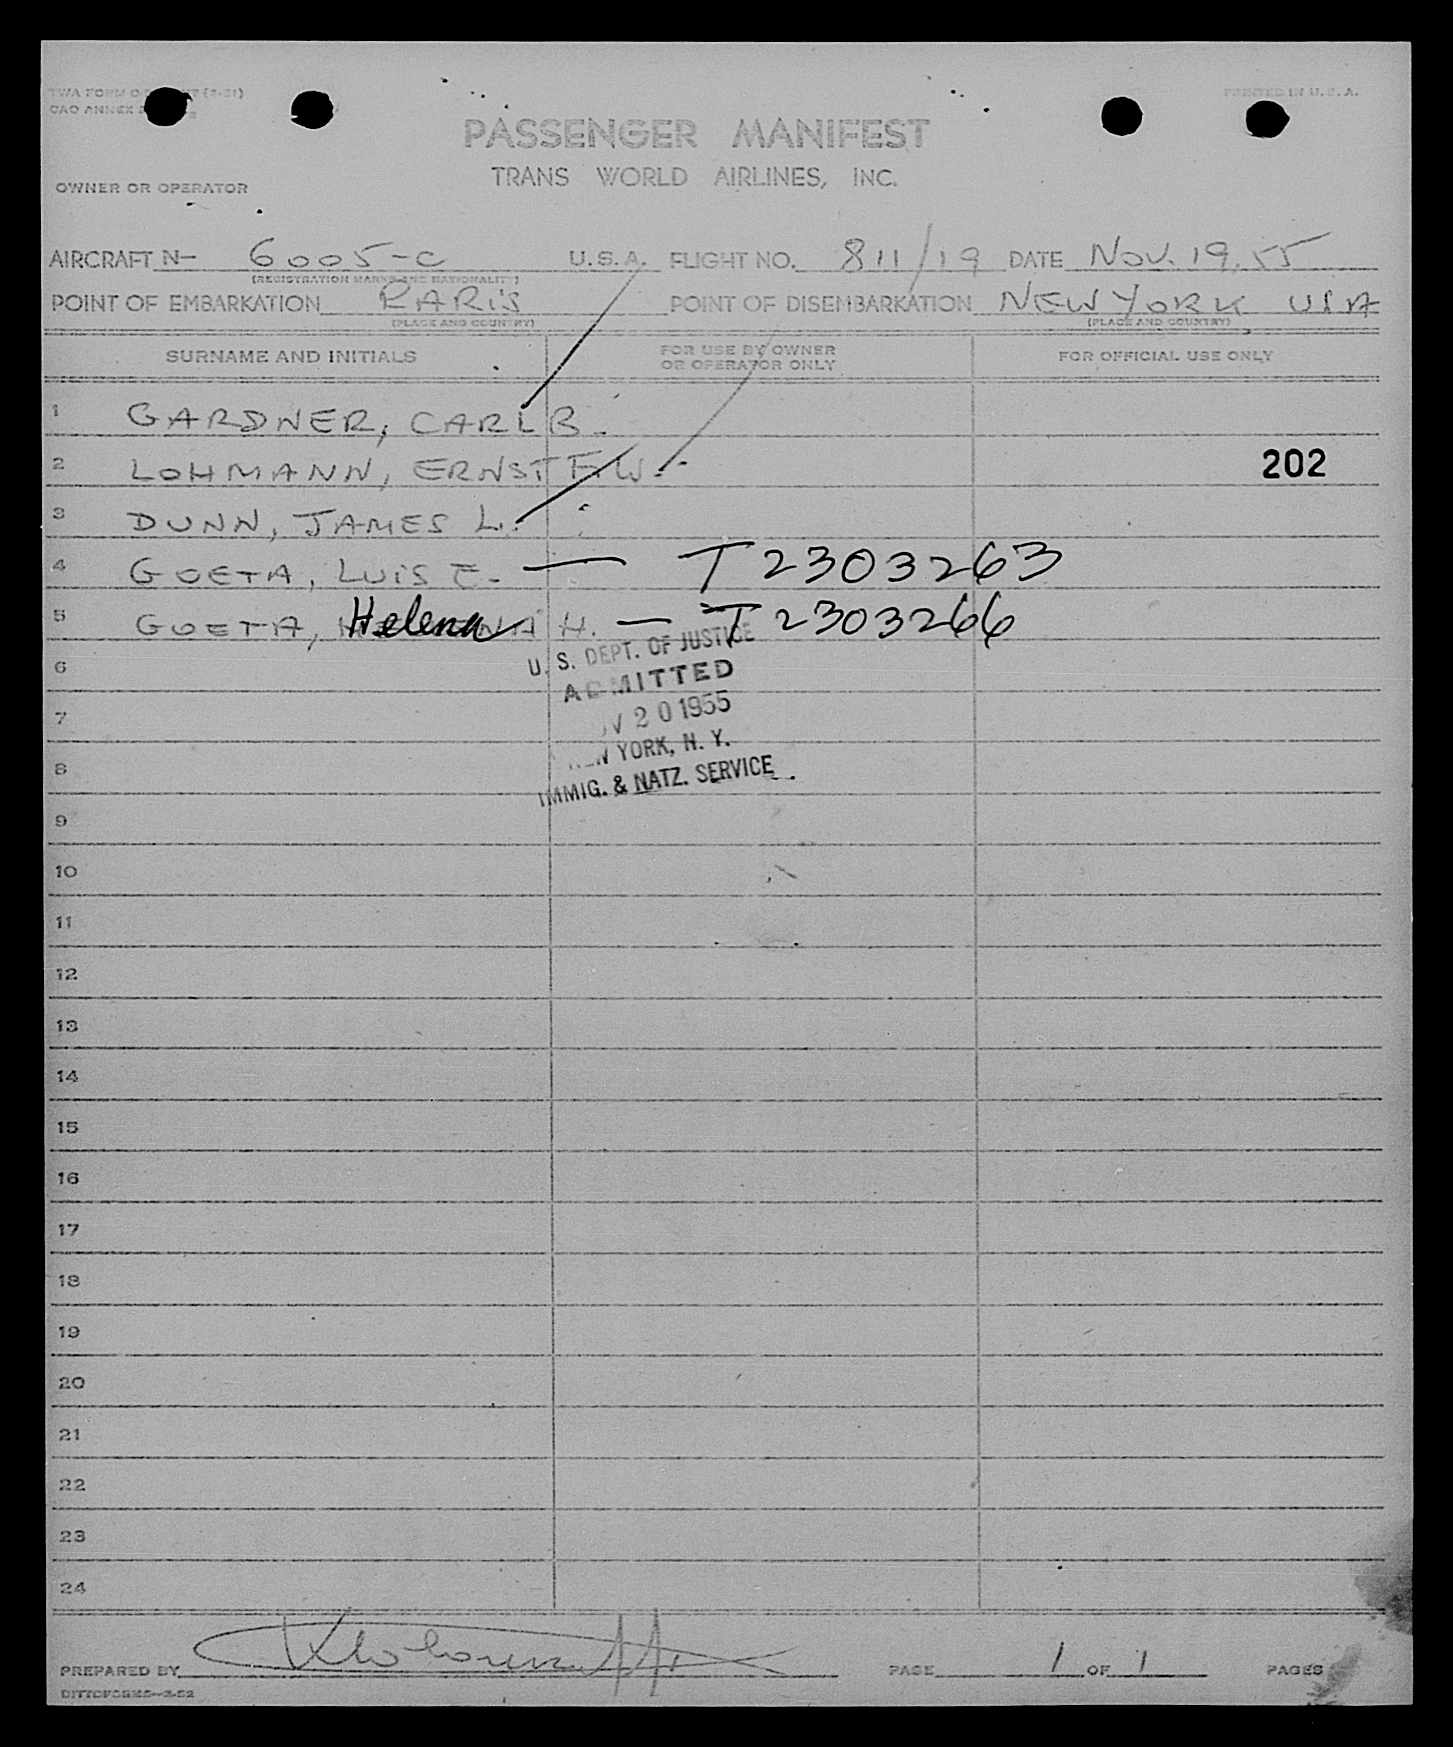 TWA FORM
PRINTED IN U.S.A.
CAO ANNEX
PASSENGER MANIFEST
TRANS WORLD AIRLINES, INC.
OWNER OR OPERATOR
AIRCRAFT N- 6005-C U.S.A. FLIGHT NO. 811/19 DATE NOV. 19, 55
(REGISTRATION MARKS AND NATIONALITY)
POINT OF EMBARKATION PARIS POINT OF DISEMBARKATION NEW YORK USA
(PLACE AND COUNTRY) (PLACE AND COUNTRY)
SURNAME AND INITIALS FOR USE BY OWNER OR OPERATOR ONLY FOR OFFICIAL USE ONLY
1 GARDNER, CARL B.
2 LOHMANN, ERNST F.W. 202
3 DUNN, JAMES L.
4 GOETA, LUIS E. — T2303263
5 GOETA, Helena H. — T2303266
U.S. DEPT. OF JUSTICE
6
ADMITTED
7
NOV 20 1955
NEW YORK, N.Y.
8
IMMIG. & NATZ. SERVICE
9
10
11
12
13
14
15
16
17
18
19
20
21
22
23
24
PREPARED BY PAGE 1 OF 1 PAGES
DITTOFORMS-2-52